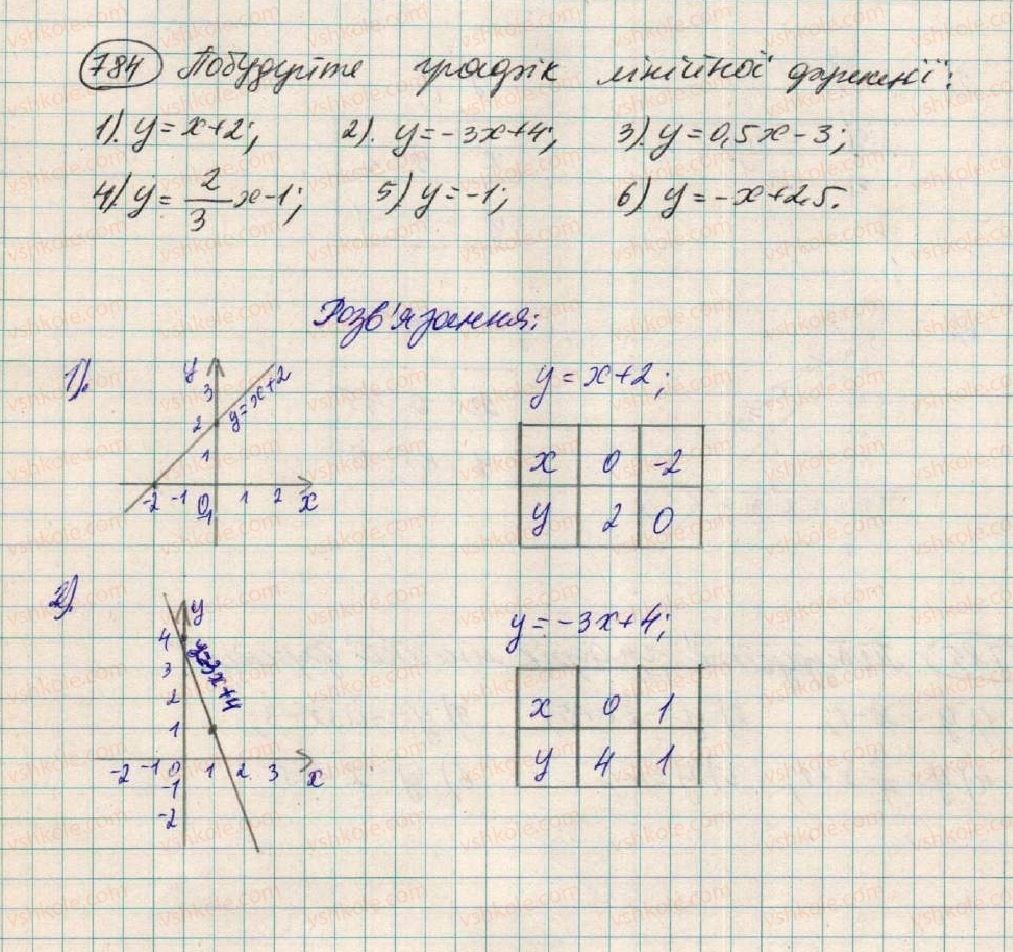 784 Побудуйте графік лінійної функції:
1). y = x+2; 2). y = -3x+4; 3). y = 0,5x - 3;
4). y = 2/3 x - 1; 5) y = -1; 6) y = -x+2,5.
Розв'язання:
1).
y
3
2
1
-2 -1 0 1 2 x
-1
y=x+2
y = x+2;
x 0 -2
y 2 0
2).
y
4
3
2
1
-2 -1 0 1 2 3 x
-1
-2
y=-3x+4
y = -3x+4;
x 0 1
y 4 1
vshkole.com